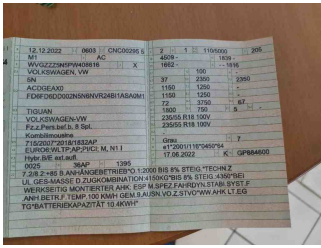 12.12.2022 0603 CNC00295 5
M1 AC
WVGZZZ5N5PW408616 X
VOLKSWAGEN, VW
5N
ACDGEAX0
FD6FD6DO002N5N8NVR24BI1ASA0M1
TIGUAN
VOLKSWAGEN-VW
Fz.z.Pers.bef.b. 8 Spl.
Kombilimousine
715/2007*2018/1832AP
EURO6;WLTP;AP;PI/CI; M, N1 I
Hybr.B/E ext.aufl
0025 36AP 1395
2 1 110/5000 205
4509 - 1839 -
1662 - - 1816
- 100 -
37 2350 2350
1150 1250 -
1150 1250 -
72 3750 67
1800 750 9 -
235/55 R18 100V
235/55 R18 100V
Grau 7
e1*2001/116*0450*64
17.06.2022 K GP664600
7.2/8.2:+85 B.ANHÄNGEBETRIEB*O.1:2000 BIS 8% STEIG.*TECHN.Z
UL GES-MASSE D.ZUGKOMBINATION:4150KG*BIS 8% STEIG.:4350*BEI
WERKSEITIG MONTIERTER AHK. ESP M.SPEZ.FAHRDYN.STABI.SYST.F
.ANH.BETR.F.TEMP.100 KM/H GEM.9.AUSN.VO.Z.STVO*WW.AHK LT.EG
TG*BATTERIEKAPAZITÄT 10.4KWH*